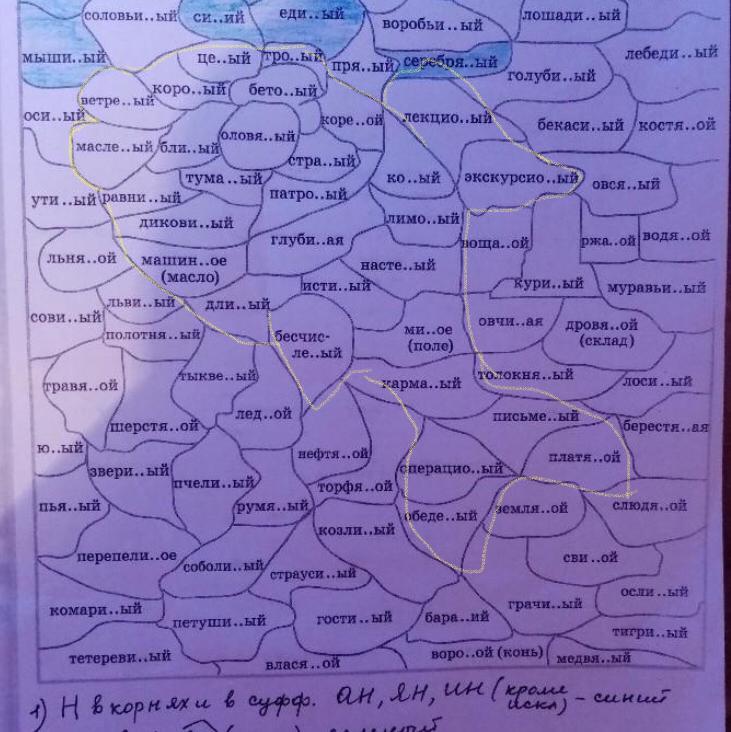 соловьи..ый си..ий еди..ый воробьи..ый лошади..ый
мыши..ый це..ый тро..ый пря..ый серебря..ый голуби..ый лебеди..ый
ветре..ый коро..ый бето..ый
оси..ый коре..ой лекцио..ый бекаси..ый костя..ой
масле..ый бли..ый оловя..ый стра..ый
тума..ый ко..ый экскурсио..ый овся..ый
ути..ый равни..ый патро..ый
дикови..ый лимо..ый
глуби..ая воща..ой ржа..ой водя..ой
льня..ой машин..ое
(масло) насте..ый
исти..ый кури..ый муравьи..ый
львы..ый дли..ый
сови..ый полотня..ый бесчис-
ле..ый ми..ое
(поле) овчи..ая дровя..ой
(склад)
травя..ой тыкве..ый карма..ый толокня..ый лоси..ый
шерстя..ой лед..ой письме..ый берестя..ая
ю..ый нефтя..ой платя..ой
звери..ый пчели..ый сперацио..ый
торфя..ой
пья..ый румя..ый обеде..ый земля..ой слюдя..ой
козли..ый
перепели..ое соболи..ый страуси..ый сви..ой
осли..ый
комари..ый петуши..ый гости..ый бара..ий грачи..ый
тигри..ый
тетереви..ый влася..ой воро..ой (конь) медвя..ый
1) Н в корнях и в суфф. АН, ЯН, ИН (кроме
искл) – синий